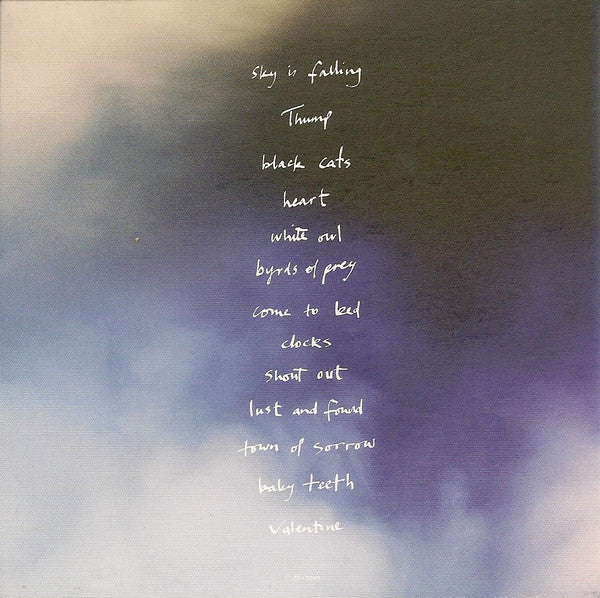 sky is falling
Thump
black cats
heart
white owl
byrds of prey
come to bed
clocks
shout out
lust and found
town of sorrow
baby teeth
Valentine